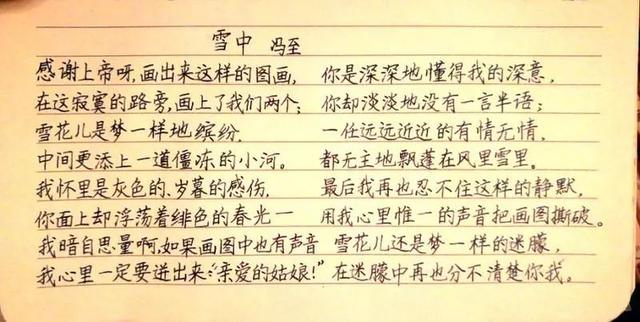 雪中 冯至
感谢上帝呀,画出来这样的图画,
在这寂寞的路旁,画上了我们两个;
雪花儿是梦一样地缤纷,
中间更添上一道僵冻的小河。
我怀里是灰色的、岁暮的感伤,
你面上却浮荡着绯色的春光—
我暗自思量啊,如果画图中也有声音
我心里一定要迸出来:“亲爱的姑娘!”
你是深深地懂得我的深意,
你却淡淡地没有一言半语;
一任远远近近的有情无情,
都无主地飘蓬在风里雪里。
最后我再也忍不住这样的静默,
用我心里惟一的声音把画图撕破。
雪花儿还是梦一样的迷朦,
在迷朦中再也分不清楚你我。